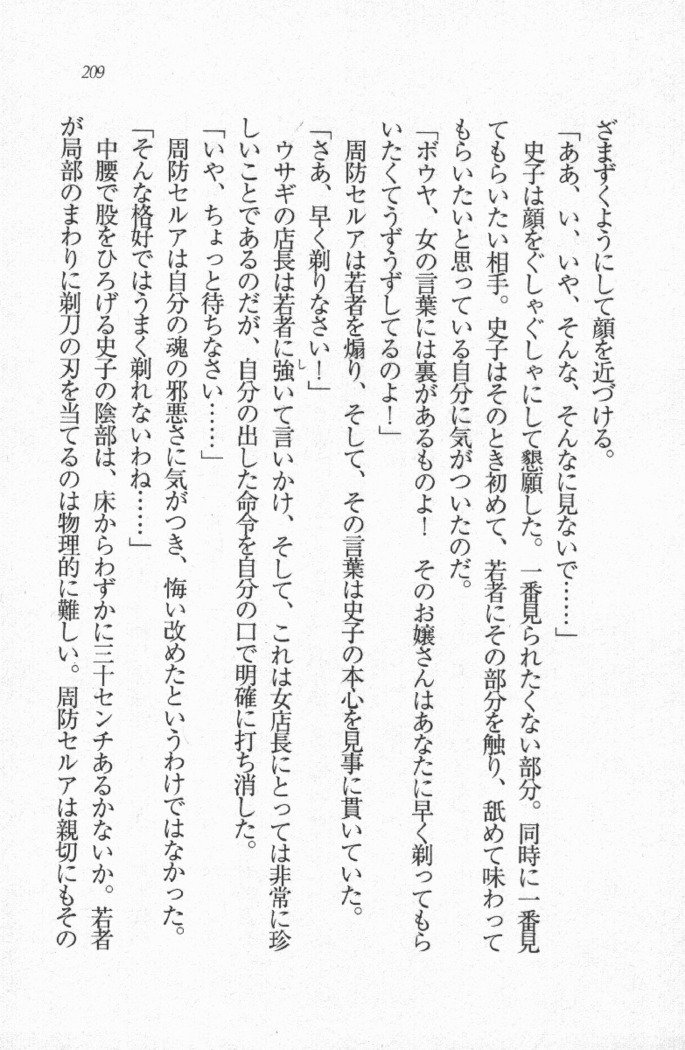 209
ざまずくようにして顔を近づける。
「ああ、い、いや、そんな、そんなに見ないで……」
史子は顔をぐしゃぐしゃにして懇願した。一番見られたくない部分。同時に一番見
てもらいたい相手。史子はそのとき初めて、若者にその部分を触り、舐めて味わって
もらいたいと思っている自分に気がついたのだ。
「ボウヤ、女の言葉には裏があるものよ！　そのお嬢さんはあなたに早く剃ってもら
いたくてうずうずしてるのよ！」
周防セルアは若者を煽り、そして、その言葉は史子の本心を見事に貫いていた。
「さあ、早く剃りなさい！」
ウサギの店長は若者に強いて言いかけ、そして、これは女店長にとっては非常に珍
し
しいことであるのだが、自分の出した命令を自分の口で明確に打ち消した。
「いや、ちょっと待ちなさい……」
周防セルアは自分の魂の邪悪さに気がつき、悔い改めたというわけではなかった。
「そんな格好ではうまく剃れないわね……」
中腰で股をひろげる史子の陰部は、床からわずかに三十センチあるかないか。若者
が局部のまわりに剃刀の刃を当てるのは物理的に難しい。周防セルアは親切にもその